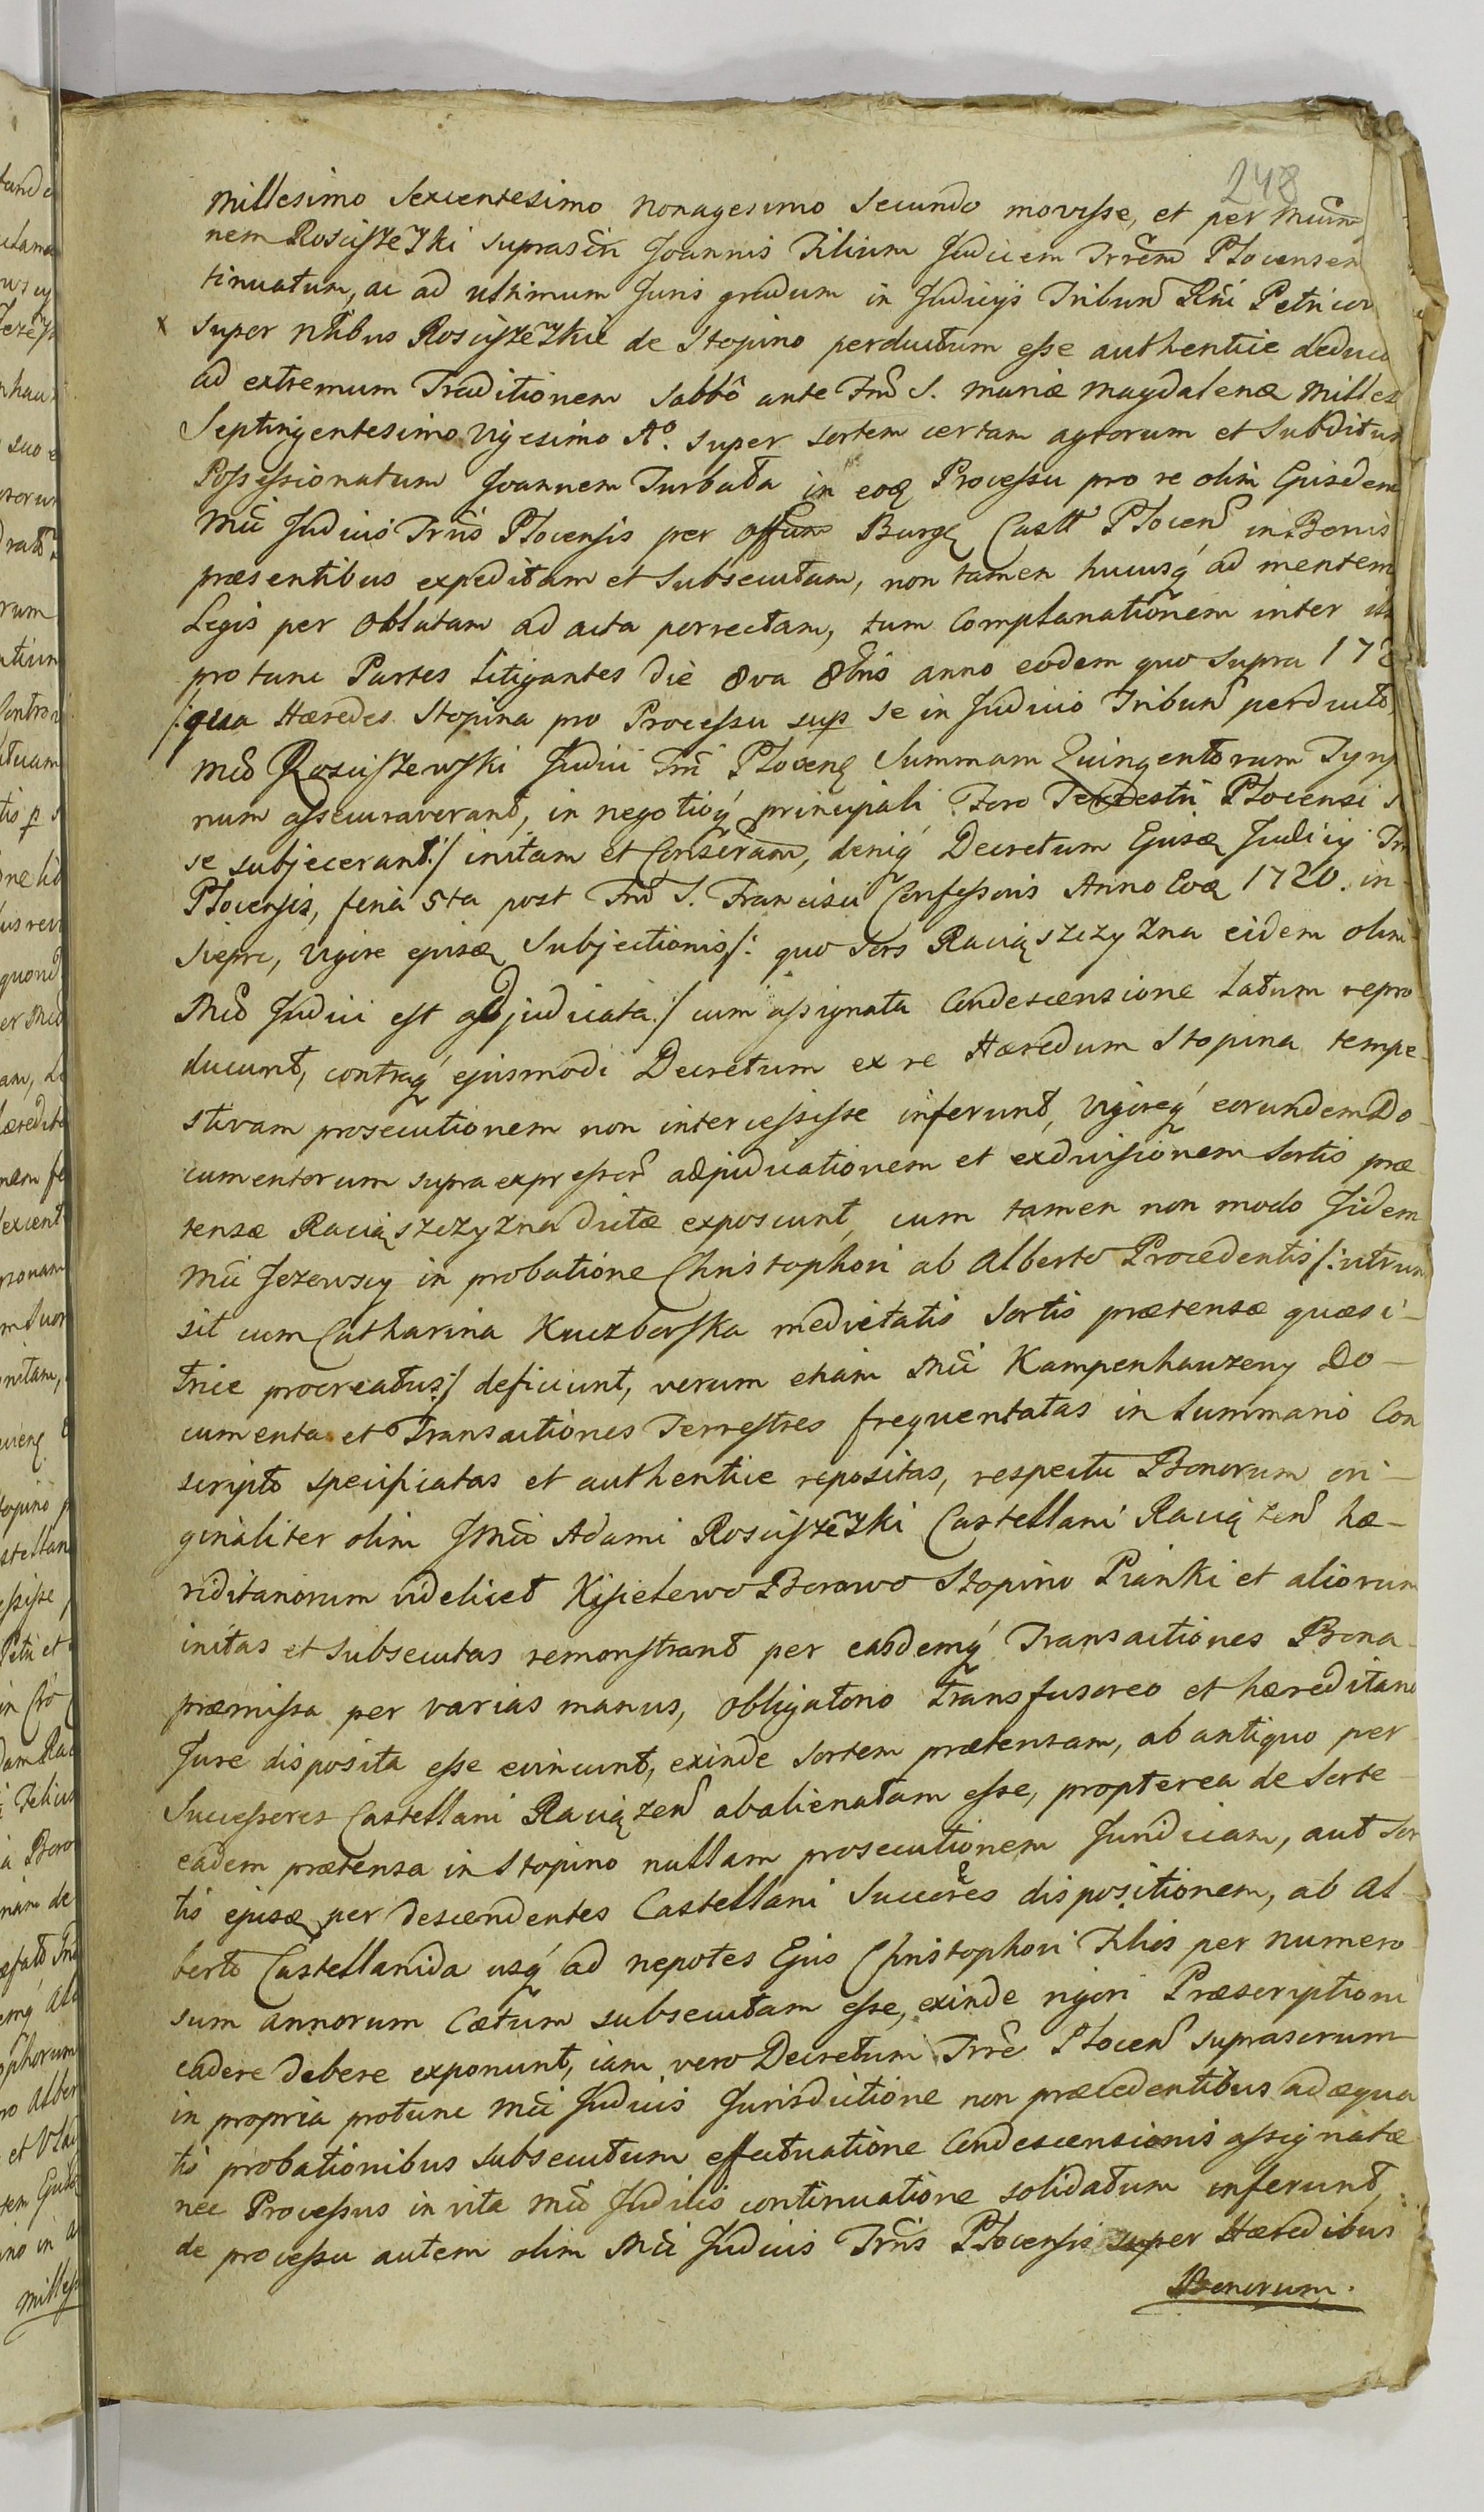 248
Millesimo Sexcentesimo Nonagesimo Secundo movisse, et per
nem Rosciszêski suprascrñ Joannis Filium Judicem Trrem Plocensen
tinuatum, ac ad ultimum Juris gradum in Judicijs Tribunl Rñi Petricov
super nttibus Rosciszêskie de Stopino perductum esse authentice deduc
ad extremum Traditionem Sabbô ante Fm̃ S. Mariæ Magdalenæ Milles
Septingentesimo Vigesimo Aº. super sortem certam agrorum et Subditum
Possessionatum Joannem Turbata in eoq̨ Processu pro re olim Ejusdem
Mci Judicis Trris Plocensis per Offum Burgę Castt Plocens in Bonis
præsentibus expeditam et Subsecutam, non tamen hucusq́ ad mentem
Legis per Oblatam ad acta porrectam, tum Complanationem inter
protunc Partes Litigantes die 8va 8bris anno eodem quo supra 172
/:qua Hæredes Stopina pro Processu sup se in Judicio Tribunl perducto,
Mco Rosciszewski Judici Trri Plocenę Summam Quingentorum Tynf
num assecuraverant, in negotioq́ principali Foro Terrestri Plocensi
se subjecerant:/ initam et Conseram, deniq́ Decretum Ejusę Judicij
Plocensis, feria 5ta post Fm̃ S. Francisci Confessoris Anno Eoę 1720. in
Sieprc, Vigore ejusę Subjectionis/: quo Sors Raciąszczyzna eidem olim
Mco Judici est adjudicata:/ cum assignata Condescensione latum repro
ducunt, contraq́ ejusmodi Decretum ex re Hæredum Stopina tempe-
stivam prosecutionem non intercessisse inferunt, Vigoreq́ eorundem Do-
cumentorum supra expressor adjudicationem et exdivisionem Sortis præ
tensæ Raciąszczyzna dictæ exposcunt, cum tamen non modo fidem
Mci Jezewscy in probatione Christophori ab Alberto Procedentis/: utrum
sit cum Catharina Kuczborska medietatis Sortis prætensæ quæsi-
trice procreatus:/ deficiunt, verum etiam Mci Kampenhauzeny Do-
cumenta et Transactiones Terrestres frequentatas in Summario Con
scripto specificatas et authentice repositas, respectu Bonorum ori-
ginaliter olim JMci Adami Rosciszêski Castellani Raciązens hæ-
riditariorum videlicet Kisielewo Borowo Stopino Pianki et aliorum
initas et subsecutas remonstrant per easdemq́ Transactiones Bona-
præmissa per varias manus, obligatorio transfusoreo et hæreditario
Jure disposita esse evincunt, exinde sortem prætensam, ab antiquo per
Successores Castellani Raciązens abalienatam esse, propterea de Sorte
eadem prætensa in Stopino nullam prosecutionem Juridicam, aut Sor
tis ejusę per descendentes Castellani Succores dispositionem, ab Al-
berto Castellanida usq́ ad nepotes Ejus Christophori Filios per numero
sum annorum Cætum subsecutam esse, exinde rigori Præscriptioni
cadere debere exponunt, iam vero Decretum Trre Plocens suprascrum
in propria protunc Mci Judicis Jurisdictione non præcedentibus adæqua
tis probationibus subsecutum effectuatione Condescensionis assignatæ
nec Processus in vita Mci Judicis continuatione solidatum inferunt,
de processu autem olim Mci Judicis Trris Plocensis super Hæredibus
Bonorum.